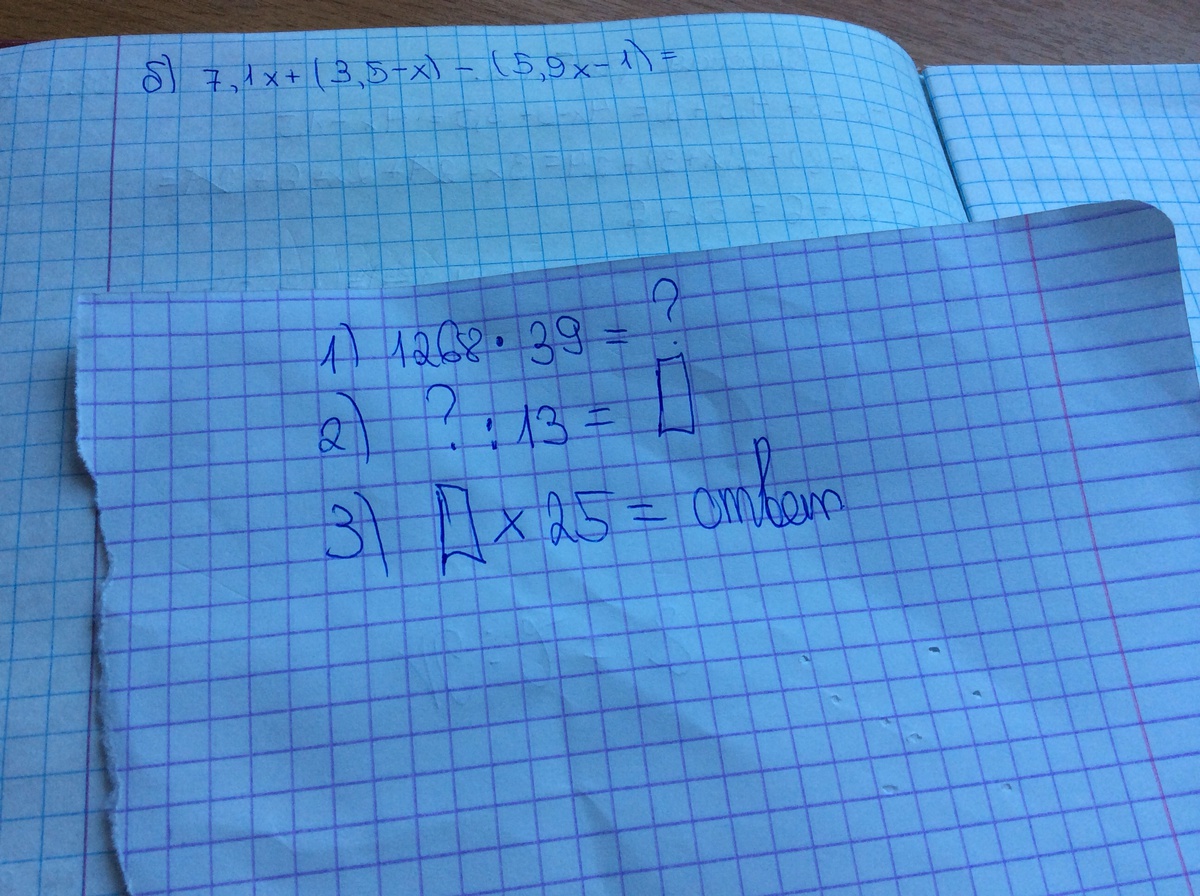 б) 7,1x+(3,5-x)-(5,9x-1)=
1) 1268·39=?
2) ?:13=▯
3) ▯×25=ответ